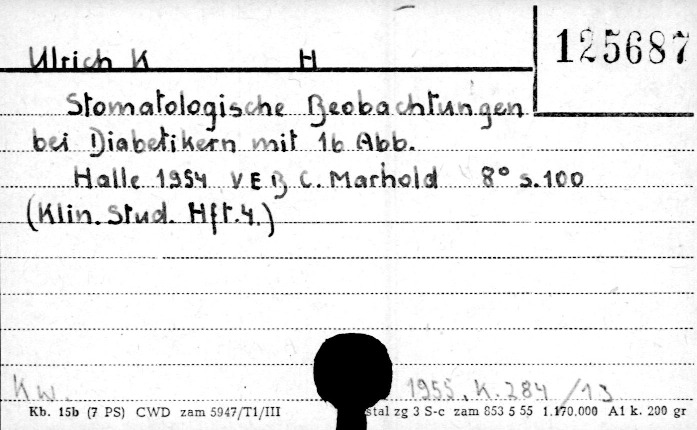 Ulrich K H 125687
Stomatologische Beobachtungen
bei Diabetikern mit 16 Abb.
Halle 1954 VEB C. Marhold 8° s.100
(Klin. Stud. Hft.4.)
Kw. 1955. K. 284/13
Kb. 15b (7 PS) CWD zam 5947/T1/III stal zg 3 S-c zam 853 5 55 1.170,000 A1 k. 200 gr